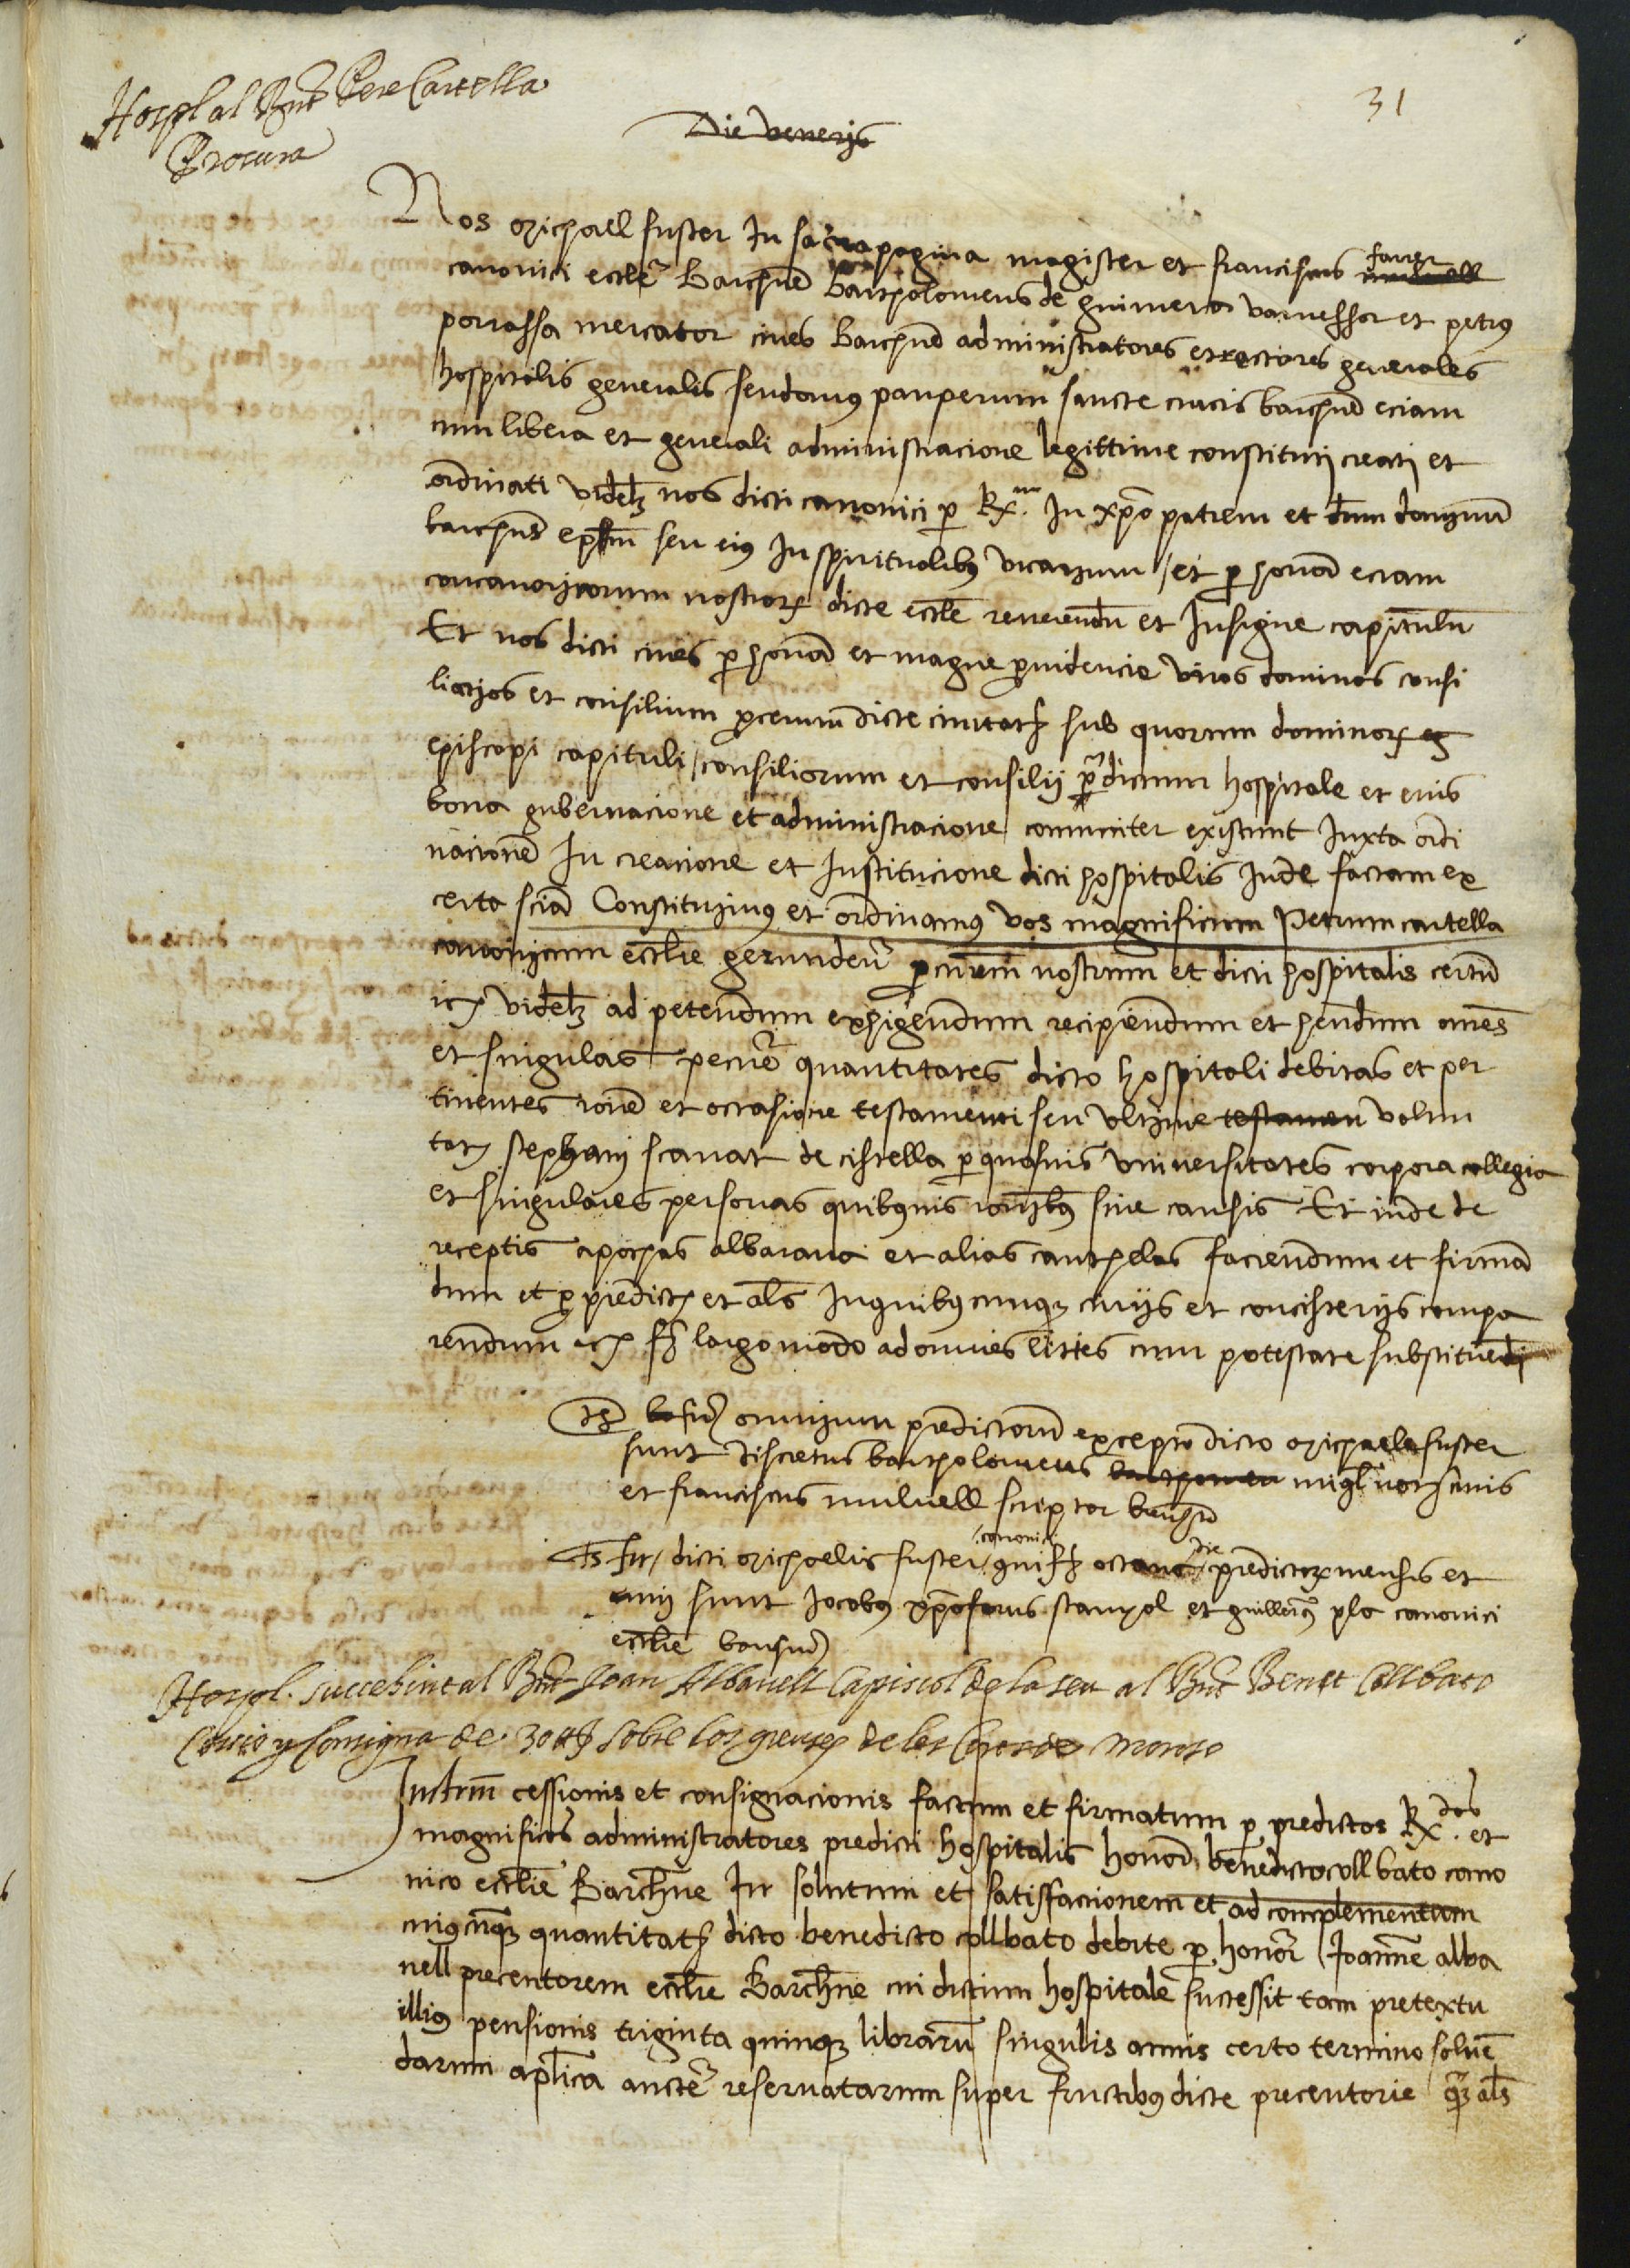 31
Hospl al Rnt Pere Cartella
Procura
Die Venerijs
Nos Michaell fuster In sacra pagina magister et franciscus ferrer
canonici eccle Barchne Bartholomeus de guimera varvessor et petrus
porrassa mercator cives barchne administratores et rectores generales
hospitalis generalis sendomus pauperum sancte crucis barchne eciam
cum libera et generali administracione legittime constituti creati et
ordinati videlz nos dicti canonici per Rx.m In xpo patrem et dnm domynum
barchne epm seu eius In spiritualibus vicarium / et per honom eciam
concanonicorum nostrorum dicte eccle reverendum et Insigne capitulum
Et nos dicti cives per honom et magne providencie viros dominos consi
liarios et consilium procerum dicte civitatis sub quorum dominorum
episcopi capituli / consiliorum et consilii predictum hospitale et eius
bona gubernacione et administracione comuniter existunt Juxta ordi
nacionem In creacione et Institucione dicti hospitalis Inde factam ex
certa sciam Constituimus et ordinamus vos magnificum Petrum cartella
canonicum ecclie gerunden procurem nostrum et dicti hospitalis certum
etc videlz ad petendum exhigendum recipiendum et hendum omnes
et singulas pecune quantitates dicto hospitali debitas et per
tinentes racione et occasione testamenti seu ultime testamen volun
tatis stephani scavat de cistella per quasvis universitates corpora collegia
et singulares personas quibusvis racionibus sive causis Et inde de
receptis apochas albarana et alias cauthelas faciendum et firman
dum et pro predictis et als In quibuscumque curiis et concisteriis compa
rendum etc fiat largo modo ad omnes littes cum potestate substituendi
Ts omnium predictorum excepto dicto Michaele fuster
sunt discretus bartholomeus miquel not civis
et franciscus mulnell scriptor barchne
Ts fir / dicti Michaelis fuster / canonici / qui fir octavo die predictorum mensis et
anni sunt Jacobus xpoforus stanyol et guillermus pla canonici
ecclie barchne
Hospl. succehint al Rnt Joan Albanell Capiscol de la seu al Rnt Benet Collbato
Cessio y Consigna de 30 ll sobre los
Instrum cessionis et consignacionis factum et firmatum per predictos Rx.dos et
magnificos administratores predicti hospitalis honor benedicto collbato cano
nico ecclie Barchne In solutum et satisfaccionem et ad complementum
cuiuscumque quantitatis dicto benedicto collbato debite per honor Joannem alba
nell precentorem ecclie Barchne cui dictum hospitale successit tam pretextu
illius pensionis triginta quinque librarum singulis annis certo termino solven
darum aplica aucte reservatarum super fructibus dicte precentorie quam als